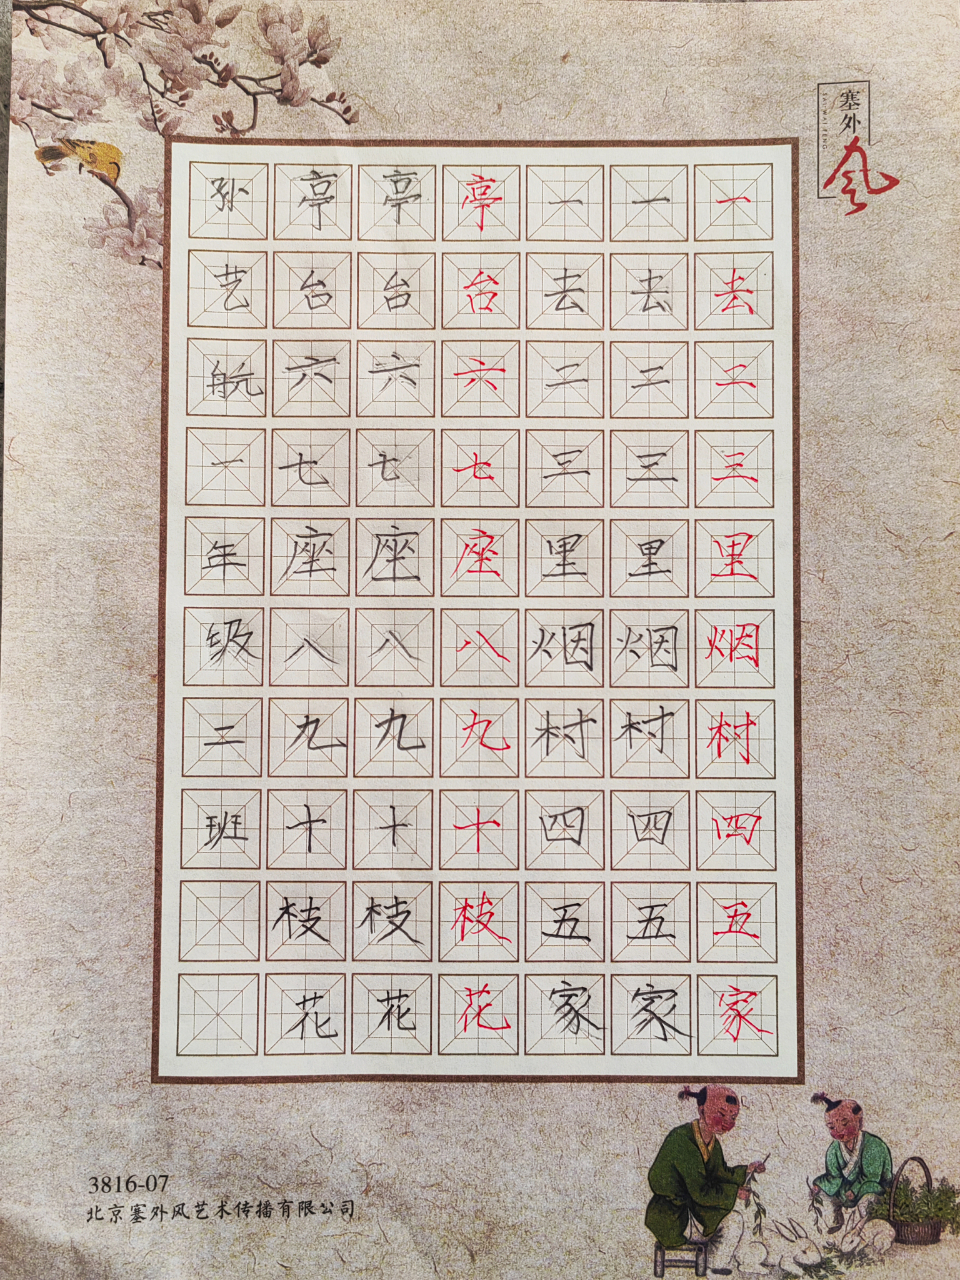 塞外风
SAI WAI FENG
一去二三里烟村四五家
一去二三里烟村四五家
一去二三里烟村四五家
亭台六七座八九十枝花
亭台六七座八九十枝花
亭台六七座八九十枝花
孙艺航一年级二班
3816-07
北京塞外风艺术传播有限公司